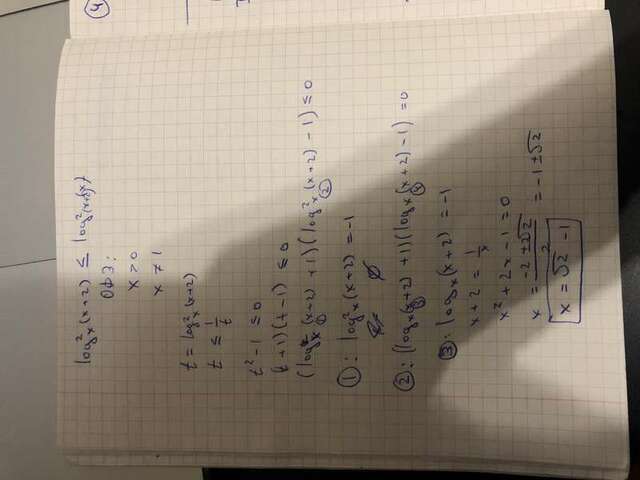 log²ₓ(x+2) ≤ log²₍ₓ₊₂₎(x)
ОДЗ:
x > 0
x ≠ 1
t = log²ₓ(x+2)
t ≤ 1/t
t² - 1 ≤ 0
(t+1)(t-1) ≤ 0
(log²ₓ(x+2) + 1)(log²ₓ(x+2) - 1) ≤ 0
① ②
①: log²ₓ(x+2) = -1
∅
②: (logₓ(x+2) + 1)(logₓ(x+2) - 1) = 0
③ ④
③: logₓ(x+2) = -1
x + 2 = 1/x
x² + 2x - 1 = 0
x = (-2 ± 2√2)/2 = -1 ± √2
x = √2 - 1
④